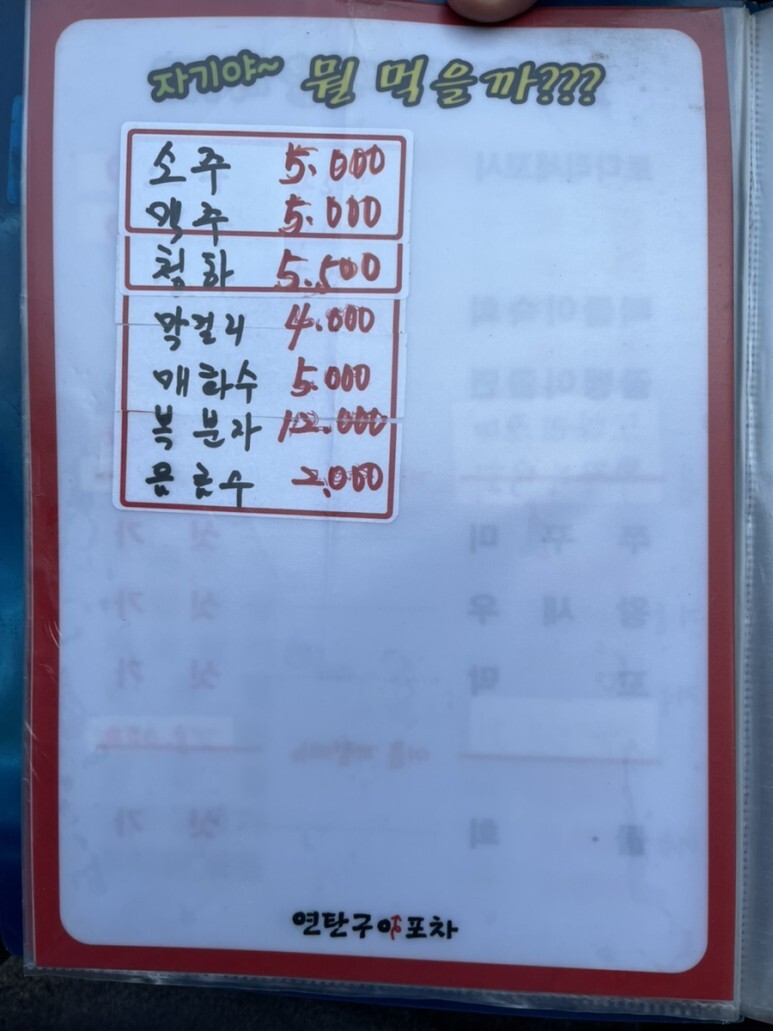 자기야~ 뭘 먹을까???
소주 5.000
맥주 5.000
청하 5.500
막걸리 4.000
매화수 5.000
복분자 12.000
음료수 2.000
연탄구이포차